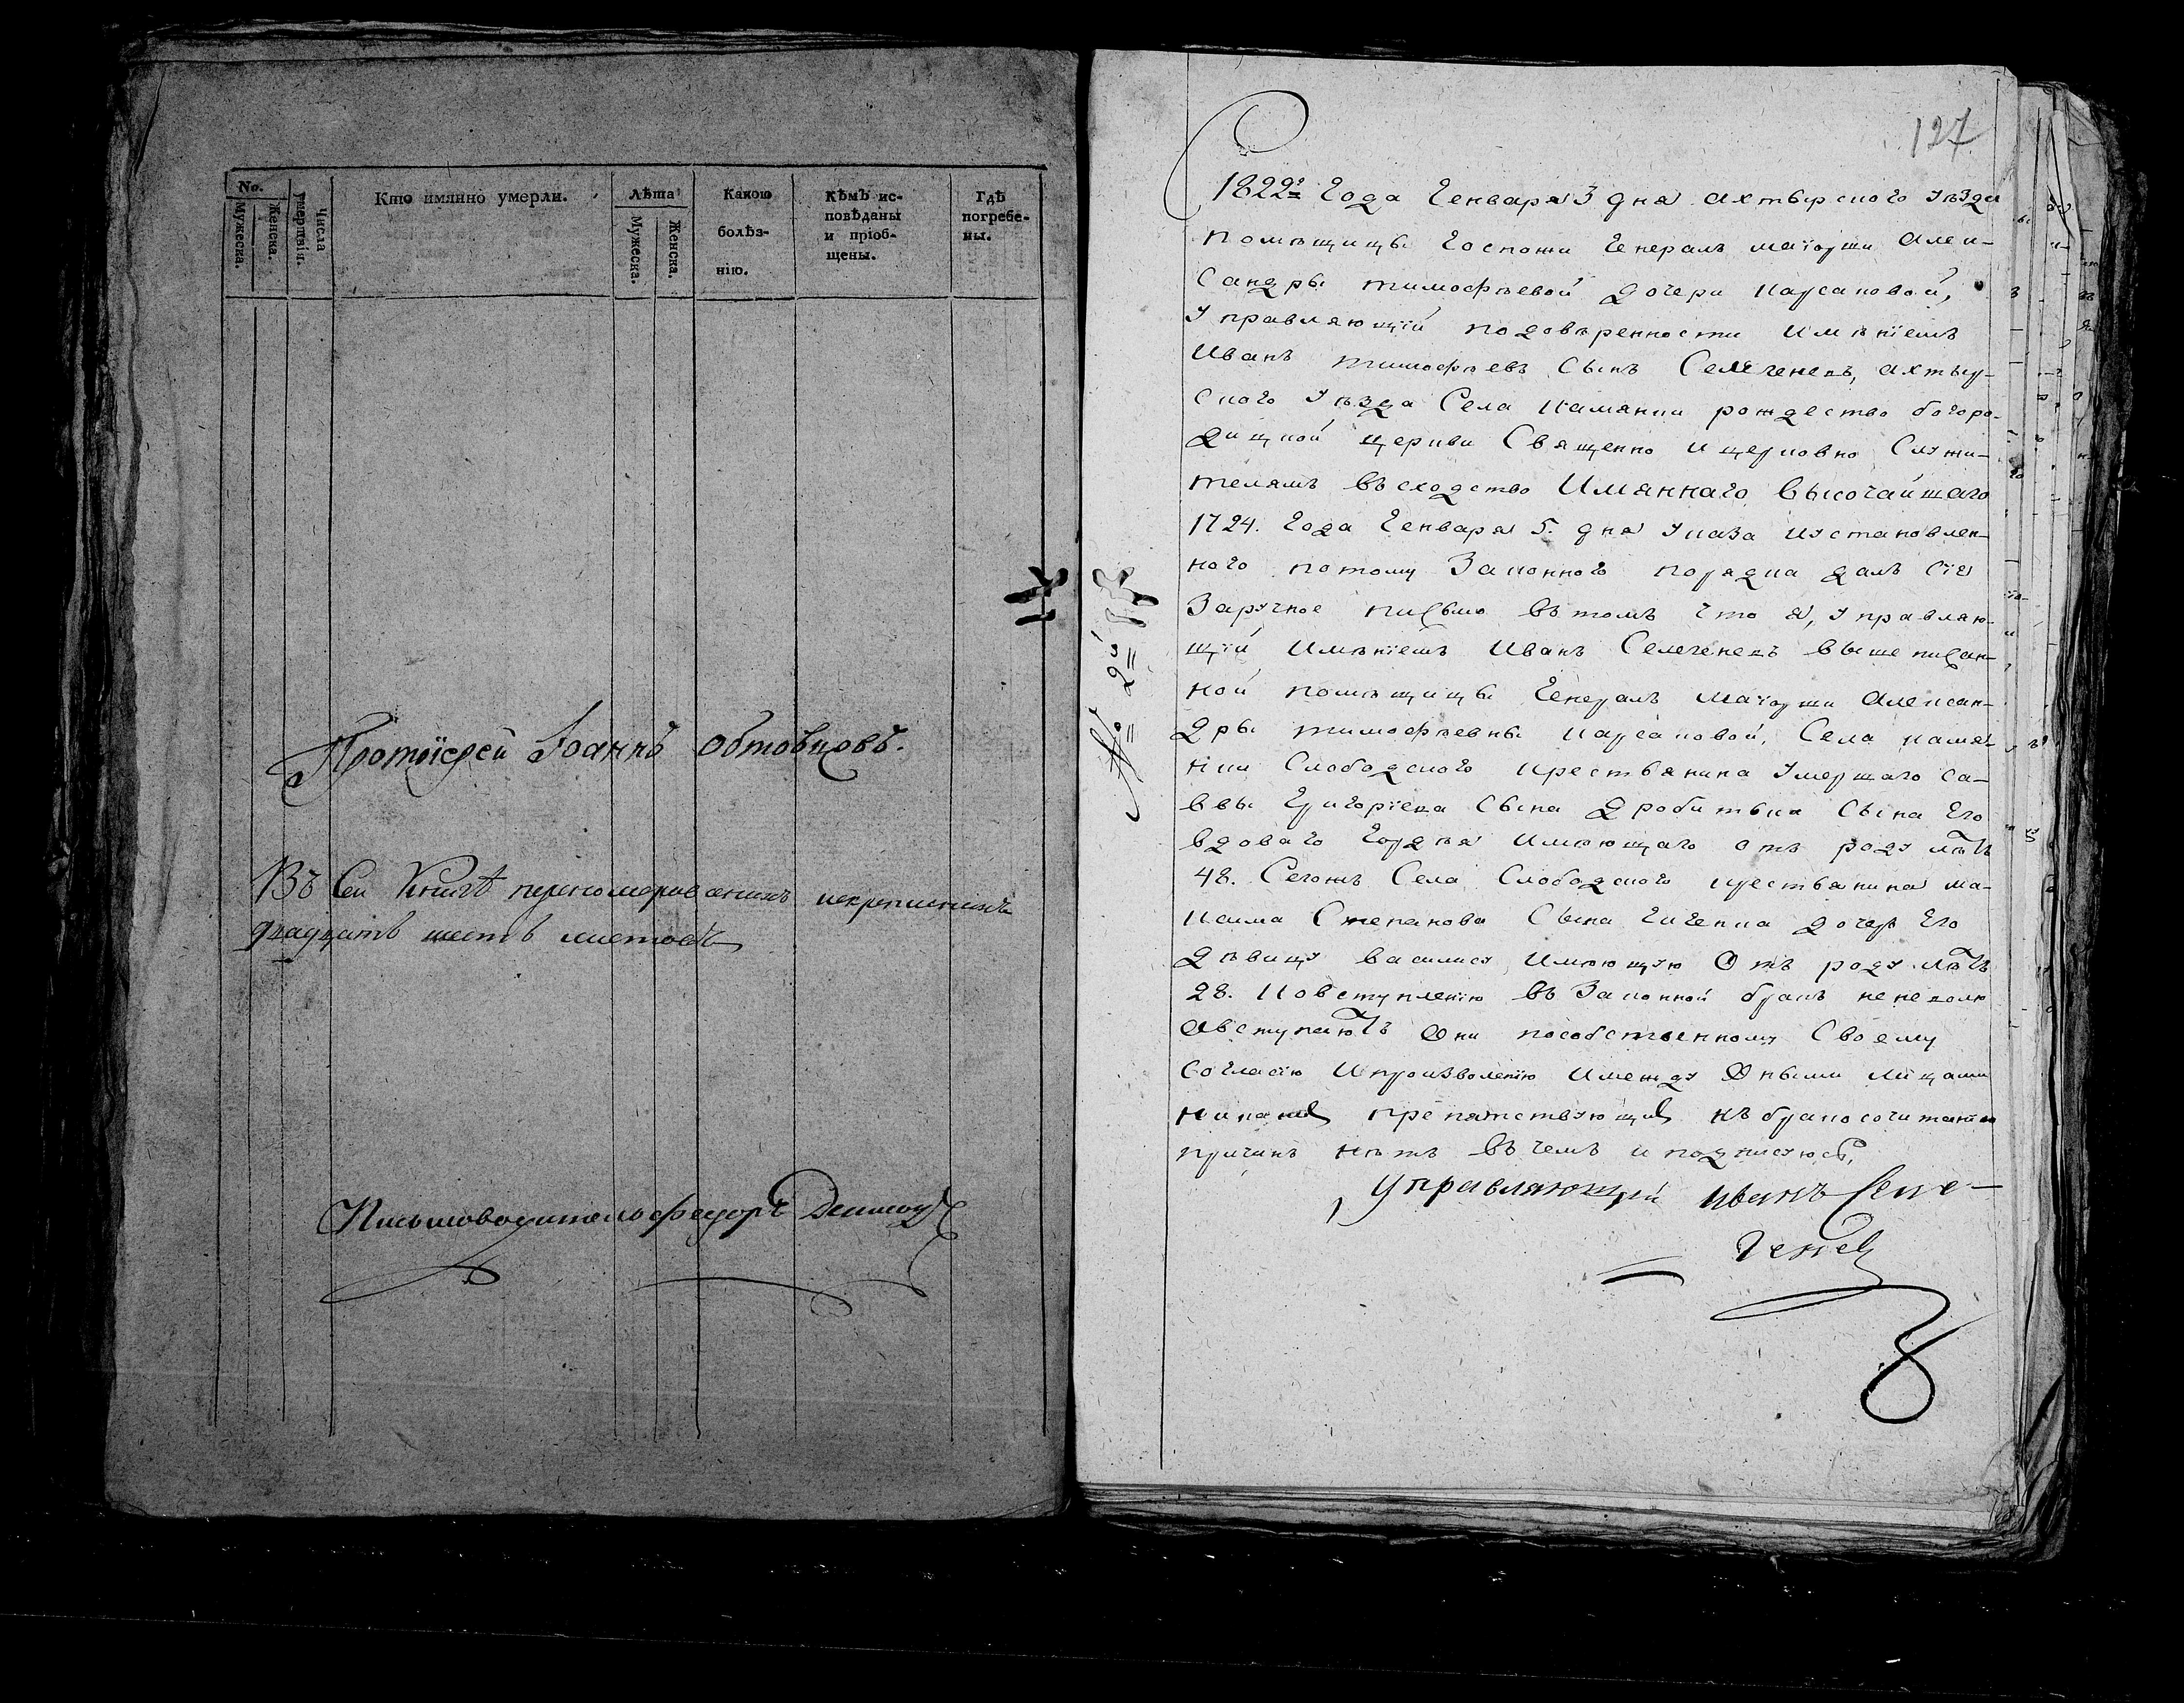 No.
Мужеска.
Женска.
Числа умертвія.
Кто имянно умерли.
Лѣта
Мужеска.
Женска.
Какою болѣз-
нію.
Кѣмъ ис-
повѣданы
и пріоб-
щены.
Гдѣ
погребе-
ны.
Протоіерей Іоаннъ
Въ сей книгѣ перенумерованныхъ
двадцать шесть листовъ
Письмоводитель Федоръ
127
№ 2й
1822го Года Генваря 3 дня ахтырского уѣзда
помѣщицы Госпожи Генералъ маіорши Алек-
сандры тимофѣевой дочери карсаковой,
управляющій подовѣренности имѣніемъ
Иванъ тимофѣевъ сынъ Селегенецъ, ахтыр-
ского уѣзда Села камянки рождество богоро-
дицкой церкви Священно ицерковно Служи-
телямъ въсходство Имяннаго высочайшаго
1724. Года Генваря 5. дня указа иустановлен-
ного потому Законного порядка далъ сіе
Заручное письмо втомъ что я, управляю-
щій имѣніемъ Иванъ Селегенецъ вышеписан-
ной помѣщицы Генералъ маіорши Алексан-
дры тимофѣевны карсаковой, Села камян-
ки Слободского крестьянина умершаго са-
ввы Григоріева Сына Дробитька сына Его
вдоваго Гордѣя имѣющаго отъ роду лѣтъ
48. Сегожъ Села Слободского крестьянина ма-
ксима Степанова Сына дочерь Его
дѣвицу василису имѣющую Отъ роду лѣтъ
28. Ковступленію въ Законной бракъ неневолю
авступаютъ Они пособственному Своему
Согласію ипроизволенію имежду Оными лицами
никакихъ препятствующихъ къ бракосочитанію
причинъ нѣтъ въчемъ и подписуюсь,
Управляющій Иванъ Селе-
генецъ